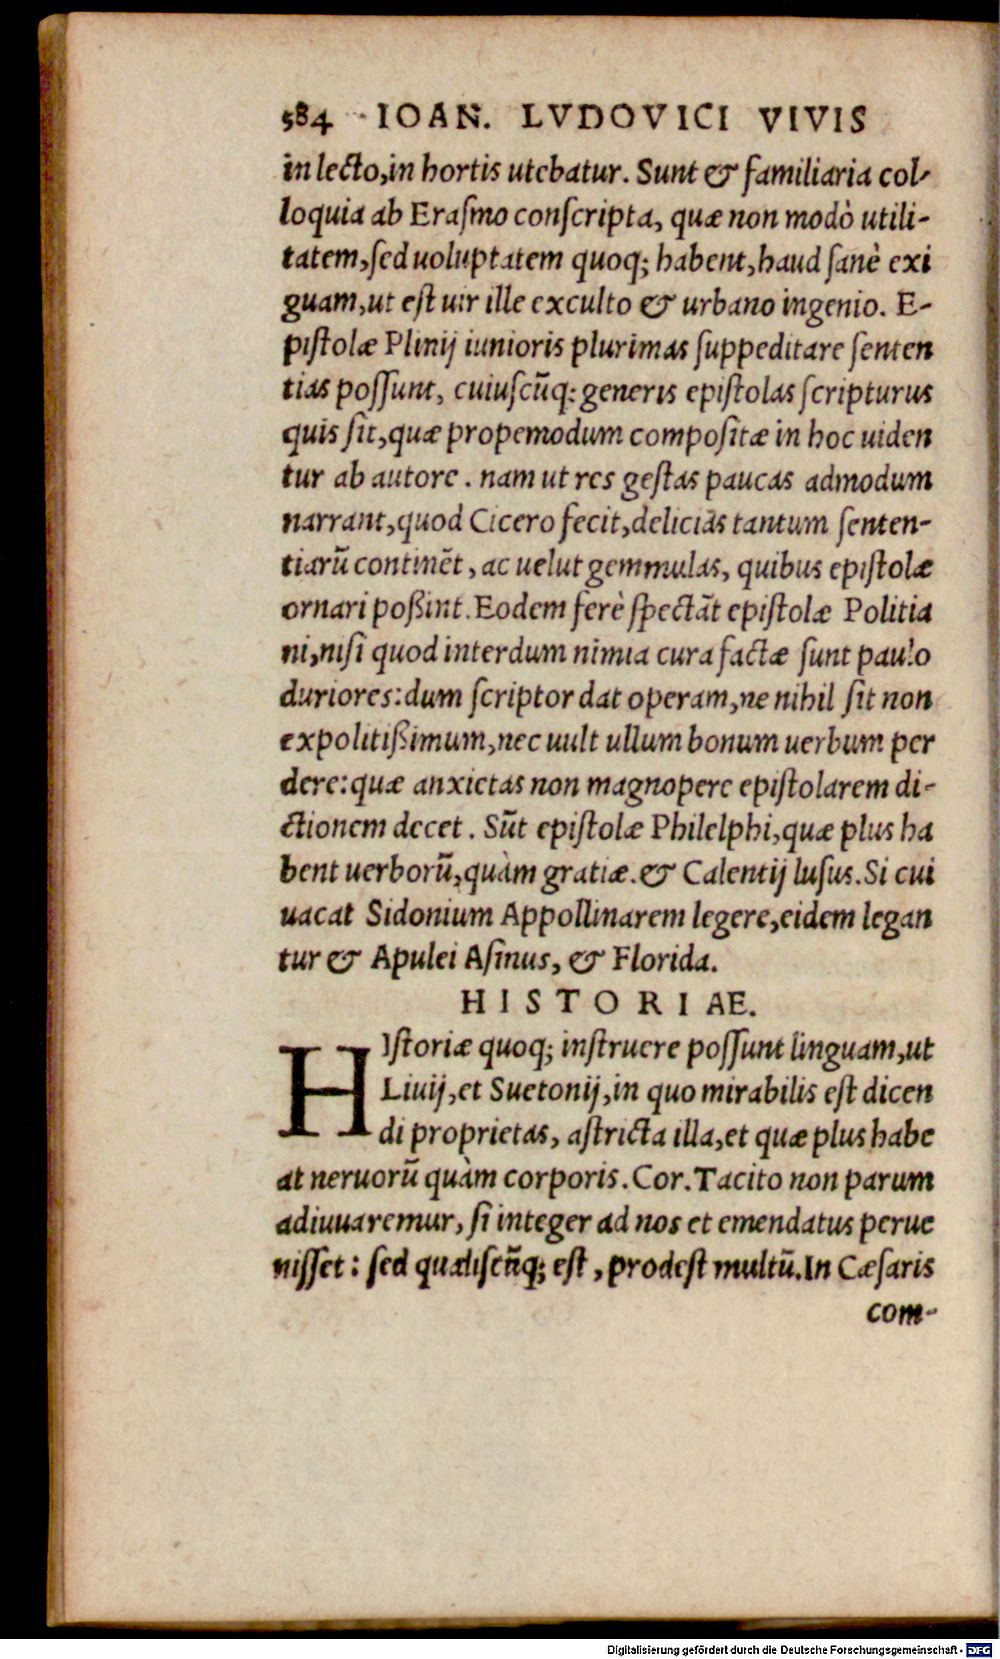 584 IOAN. LVDOVICI VIVIS
in lecto,in hortis utebatur. Sunt & familiaria col-
loquia ab Eraſmo conſcripta, quæ non modò utili-
tatem,ſed uoluptatem quoq; habent,haud ſanè exi
guam,ut eſt uir ille exculto & urbano ingenio. E-
piſtolæ Plinij iunioris plurimas ſuppeditare ſenten
tias poſſunt, cuiuſcũq; generis epiſtolas ſcripturus
quis ſit,quæ propemodum compoſitæ in hoc uiden
tur ab autore . nam ut res geſtas paucas admodum
narrant,quod Cicero fecit,delicias tantum ſenten-
tiarũ continẽt, ac uelut gemmulas, quibus epiſtolæ
ornari poßint. Eodem ferè ſpectãt epiſtolæ Politia
ni,niſi quod interdum nimia cura factæ ſunt paulo
duriores: dum ſcriptor dat operam,ne nihil ſit non
expolitißimum,nec uult ullum bonum uerbum per
dere: quæ anxietas non magnopere epiſtolarem di-
ctionem decet . Sũt epiſtolæ Philelphi,quæ plus ha
bent uerborũ,quàm gratiæ. & Calentij luſus. Si cui
uacat Sidonium Appollinarem legere,eidem legan
tur & Apulei Aſinus, & Florida.
HISTORIAE.
HIſtoriæ quoq; inſtruere poſſunt linguam,ut
Liuij,et Suetonij,in quo mirabilis eſt dicen
di proprietas, aſtricta illa,et quæ plus habe
at neruorũ quàm corporis. Cor. Tacito non parum
adiuuaremur, ſi integer ad nos et emendatus perue
niſſet : ſed qualiſcũq; eſt , prodeſt multũ. In Cæſaris
com-
Digitalisierung gefördert durch die Deutsche Forschungsgemeinschaft - DFG